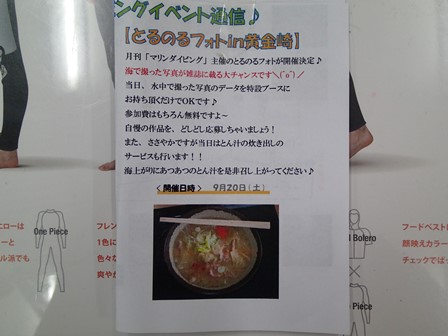 ングイベント通信♪
【とるのるフォトin黄金崎】
月刊「マリンダイビング」主催のとるのるフォトが開催決定♪
海で撮った写真が雑誌に載る大チャンスです＼(^o^)／
当日、水中で撮った写真のデータを特設ブースに
お持ち頂くだけでOKです♪
参加費はもちろん無料ですよ～
自慢の作品を、どしどし応募しちゃいましょう！
また、ささやかですが当日はとん汁の炊き出しの
サービスも行います！！
海上がりにあつあつのとん汁を是非召し上がってください♪
＜開催日時＞ 9月20日(土)
エローは
ーと
ル派でも
One Piece
フレン
1色に
色々な
爽やか
Bolero
フードベスト
顔映えカラー
チェックでば